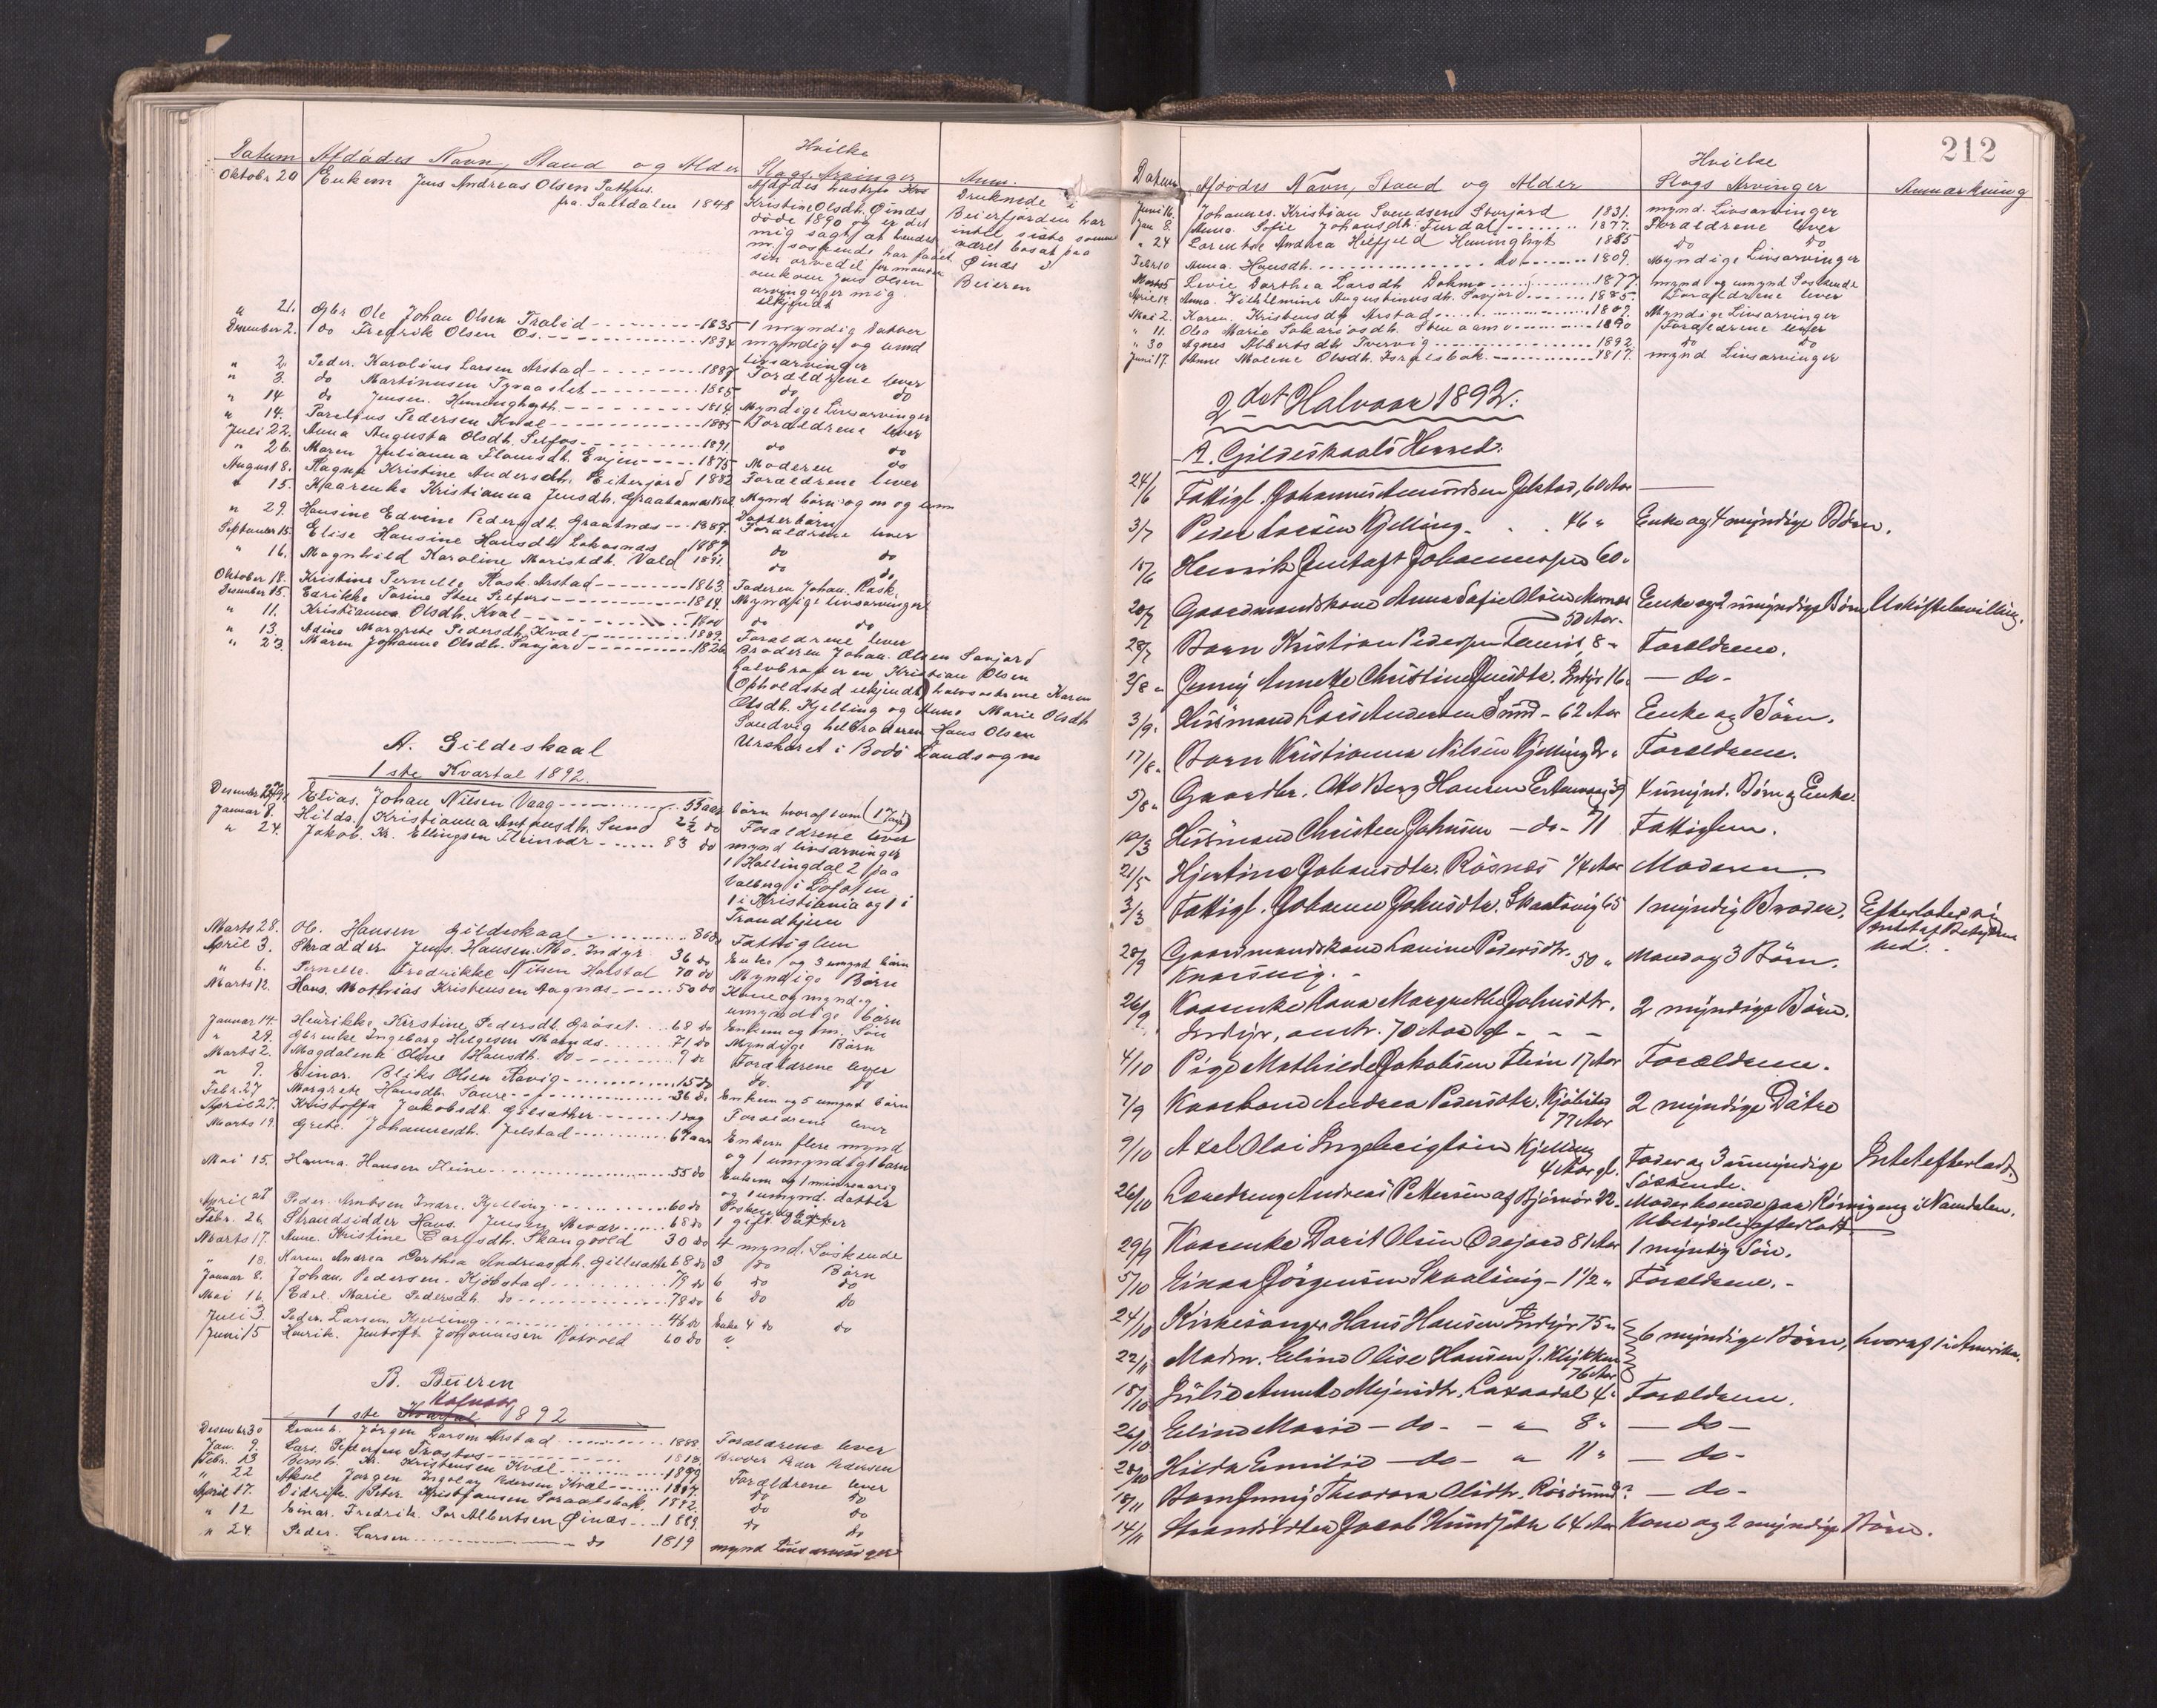 Datum Afdødes Navn, Stand og Alder Hvilke Slags Arvinger Anm.
Oktobr 20 Enkem Jens Andreas Olsen
fra Saltdalen 1848
Afdødes hustru
Kristine Olsdh. Øinæs
døde 1890 og er det
mig sagt at hendes
m. søskende har faaet
sin arvedel formoder
enkem Jens Olsen
arvinger er mig
ukjendt
Druknede i
Beierfjorden har
intil sidst
været bosat paa
Øinæs i
Beieren
" 21. Gbr Ole Johan Olsen Tralid 1835 1 myndig Datter
Desember 2. do Fredrik Olsen Os. 1834 myndige og umd
livsarvinger
" 2. Peder Karolius Larsen Arstad 1887 Forældrene lever
" 3. do Martinusen 1885 do do
" 14 do Jensen 1814 Myndige Livsarvinger
" 14. Parelius Pedersen Kvæl 1885 Forældrene lever
Juli 22. Anna Augusta Olsdh. Selfos 1891. do do
" 26. Maren Julianna 1875 Moderen do
August 8. Ragna Kristine Andersdh. Eiterjord 1882 Forældrene lever
" 15. Kaarenke Kristianna Jensdh. Mynd børn og
Datterbørn
" 29. Hansine Edvine Pedersdh. Graatnæs 1887. Forældrene lever
Septbember 15. Elise Hansine Hansdh. 1889 do do
" 16. Magnhild Karoline Vold 1891 do do
Oktober 18. Kristine Pernelle Rask Arstad 1863. Faderen Johan Rask.
Desember 15. Edrikke Torine Sten Selfors 1814. Myndige livsarvinger
" 11. Kristianna Olsdh. Kval 1800 do do
" 13. Adine Margrete Pedersdh. Kval 1889. Forældrene lever
" 23. Maren Johanne Olsdh. Savjord 1826 Broderen Johan Olsen Savjord
halvbroderen Kristian Olsen
(Opholdsted ukjendt) halvsøstrene Karen
Olsdh. Kjelling og Anne Marie Olsdh
Sandvig helbroderen Hans Olsen
i Bodø Landsogn
A. Gildeskaal
1ste Kvartal 1892.
Elias Johan Nilsen Vaag 55 aar børn hvoraf 1 um (17 aar)
Januar 8. Hilda Kristianna Antonsdh. Sund 2½ do Forældrene lever
" 24. Jakob Kr. Ellingsen Fleinvær 83 do mynd livsarvinger
1 Hallingdal 2 paa
Valberg i Lofoten
1 i Kristiania og 1 i
Trondhjem
Marts 28. Ol. Hansen Gildeskaal 80 do Fattiglem
April 3. Skrædder Jens Hansen Mo. Indyr 36 do Enke og 3 umynd børn
" 6. Pernelle Fredrikke Nilsen Horstad 70 do Myndige Børn
Marts 12. Hans Mathias Kristensen Aagnæs 50 do Kone og myndig
umyndige børn
Januar 14. Henrikke Kirstine Pedersdt. Grøset 68 do Enkem og 1 m. Søn
" 29. Gbrenke Ingeborg Helgesen Mornæs 71 do Myndige Børn
Marts 2. Magdalene Oline Hansdh. do 9 do Forældrene lever
" 9. Einar Bliks Olsen Ravig 15 do do do
Febr. 27 Margrete Hansdh. Saure 36 do Enkem og 5 umynd børn
April 27. Kristoffa Jakobsdh. Gilsæther 1 dag Forældrene lever
Marts 19. Grete Johannesdh. Jelstad 67 aar Enkem flere mynd
og 1 umyndigt barn
Mai 15. Hanna Hansen Fleine 55 do Enkem og 1 mindreaarig
og 1 umynd. datter
April 28 Peder Arntsen Indre Kjelling 60 do
Febr. 26. Strandsidder Hans Jensen 68 do 1 gift Datter
Marts 17. Ane Kristine Skaugvold 30 do 4 mynd. Søskende
" 18. Karen Andrea Dorthea Andreasdh. Gillesæther 68 do 3 do Børn
Januar 8. Johan Pedersen Kjøbstad 79 do 6 do do
Mai 16. Edel Marie Pedersdh. do 78 do 6 do do
Juli 3. Peder Larsen Kjelling 46 do Enke 4 do do
Juni 15 Henrik Jentoft Johannesen 60 do "
B. Beieren
Halvaar
1ste Kvartal 1892
Desember 30 Jørgen Larsen Arstad 1888. Forældrene lever
Jan. 9. Lars Pedersen Trøstos 1818. Broder Peder Pedersen
Febr. 13 Kr. Kristensen Kvæl 1899 Forældrene lever
" 22 Aksel Jørgen Ingolav Pedersen Kval 1887. do do
April 17. Didrik Peter Kristiansen 1892. do do
" 12 Einar Fredrik Por Albertsen Øinæs 1889. do do
" 24. Peder Larsen do 1819 mynd Livsarvinger
212
Datum Afdødes Navn, Stand og Alder Hvilke Slags Arvinger Anmærkning
Juni 16. Johannes Kristian Svendsen Storjord 1831. mynd. Livsarvinger
Jan 8. Anna Sofie Johansdh. Furdal 1877. Forældrene lever
" 24 Lorentse Andrea Hilfred 1885 do do
Febr 10 Anna Hansdh. do 1809. Myndige Livsarvinger
Marts 5 Levie Dorthea Larsdh Dokmo 1877. mynd og umynd Søskende
April 14 Anna Vilhelmine Augustinusdh. Savjord 1885. Forældrene lever
Mai 2. Karen Kristensdh Arstad 1807. Myndige Livsarvinger
" 11. Olea Marie Sakariasdh. Stenaamo 1890 Forældrene lever
" 30 Agnes Albertsdh Tvervig 1892 do do
Juni 17. Anne Malene Olsdh. 1817. mynd Livsarvinger
2det Halvaar 1892.
A. Gildeskaals Herred.
24/6 Fattigl. Johannes Amundsen Jelstad, 60 Aar
3/7 Peder Larsen Kjelling 46 " Enke og 4 myndige Børn.
15/6 Henrik Jentoft Johannessen 60 "
20/7 Gaardmandskone Anna Sofie Olsen Enke og 2 umyndige Børn Uskiftebevilling.
50 Aar.
28/7 Barn Kristian Pedersen 8 " Forældrene.
2/8 Jenny Annette Christine Jensdtr. Indyr 16 " — do -
3/9. Husmand Lars Andersen Sund - 62 Aar Enke og Børn.
17/8. Barn Kristianna Nilsen Kjelling 2 " Forældrene.
5/8 Gaardbr. Otto Berg Hansen 39 4 umynd. Børn og Enke.
10/3 Husmand Christen Johnsen - do - 71 Fattiglem.
21/5 Hjertine Johansdtr. Røsnes ¼ Aar Moderen
3/3 Fattigl. Johanna Johnsdtr. Skaalsvig 65 1 myndig Broder. Efterlader sig
intet af Betyden-
hed.
28/9 Gaardmandskone Lavine Pedersdtr. 50 " Mand og 3 Børn.
Knarsvig.
26/9 Kaarenke Anna Margrethe Johnsdtr. 2 myndige Børn.
Indyr, omtr. 70 Aar gl - - -
4/10 Pige Mathilde Jakobsen Flein 17 Aar Forældrene.
7/9 Kaarkone Andrea Pedersdtr. Kjøbstad 2 myndige Døtre
77 Aar
9/10 Axel Olai Engebrigtsen Kjelling Fader og 3 umyndige Intet efterladt.
4 Aar gl. Søskende.
26/10 Løsdreng Andreas Pettersen af Bjørnør 22. Moder boende paa i Namdalen.
Ubetydelig efterladt.
29/9 Kaarenke Dorit Olsen 81 Aar 1 myndig Søn.
5/10 Einar Jørgensen Skaalsvig - 1½ " Forældrene. -
24/10 Kirkesanger Hans Hansen Indyr 75 " 6 myndige Børn, hvoraf 1 i Amerika.
22/11 Madm. Eline Olise Hansen f. Klykken
76 Aar
18/10 Julie Annette Mejersdtr. Laxaadal 4 " Forældrene.
26/10 Eline Marie - do - " 8 " — do —
28/10 Hilda Emilie — do — " 11 " — do -
18/11 Barn Jenny Theodora Olsdtr. ? — do -
14/11 Strandsidder Jacob Hundsæth 64 Aar Kone og 2 myndige Børn.